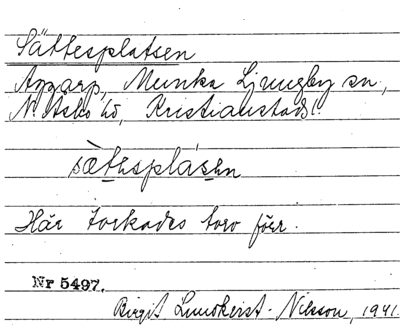 Sättesplatsen
Aggarp, Munka Ljungby sn,
N. Åsbo hd, Kristianstads l.
sæ̀tesplásen
Här torkades torv förr.
Nr 5497.
Birgit Lundkvist-Nilsson, 1941.